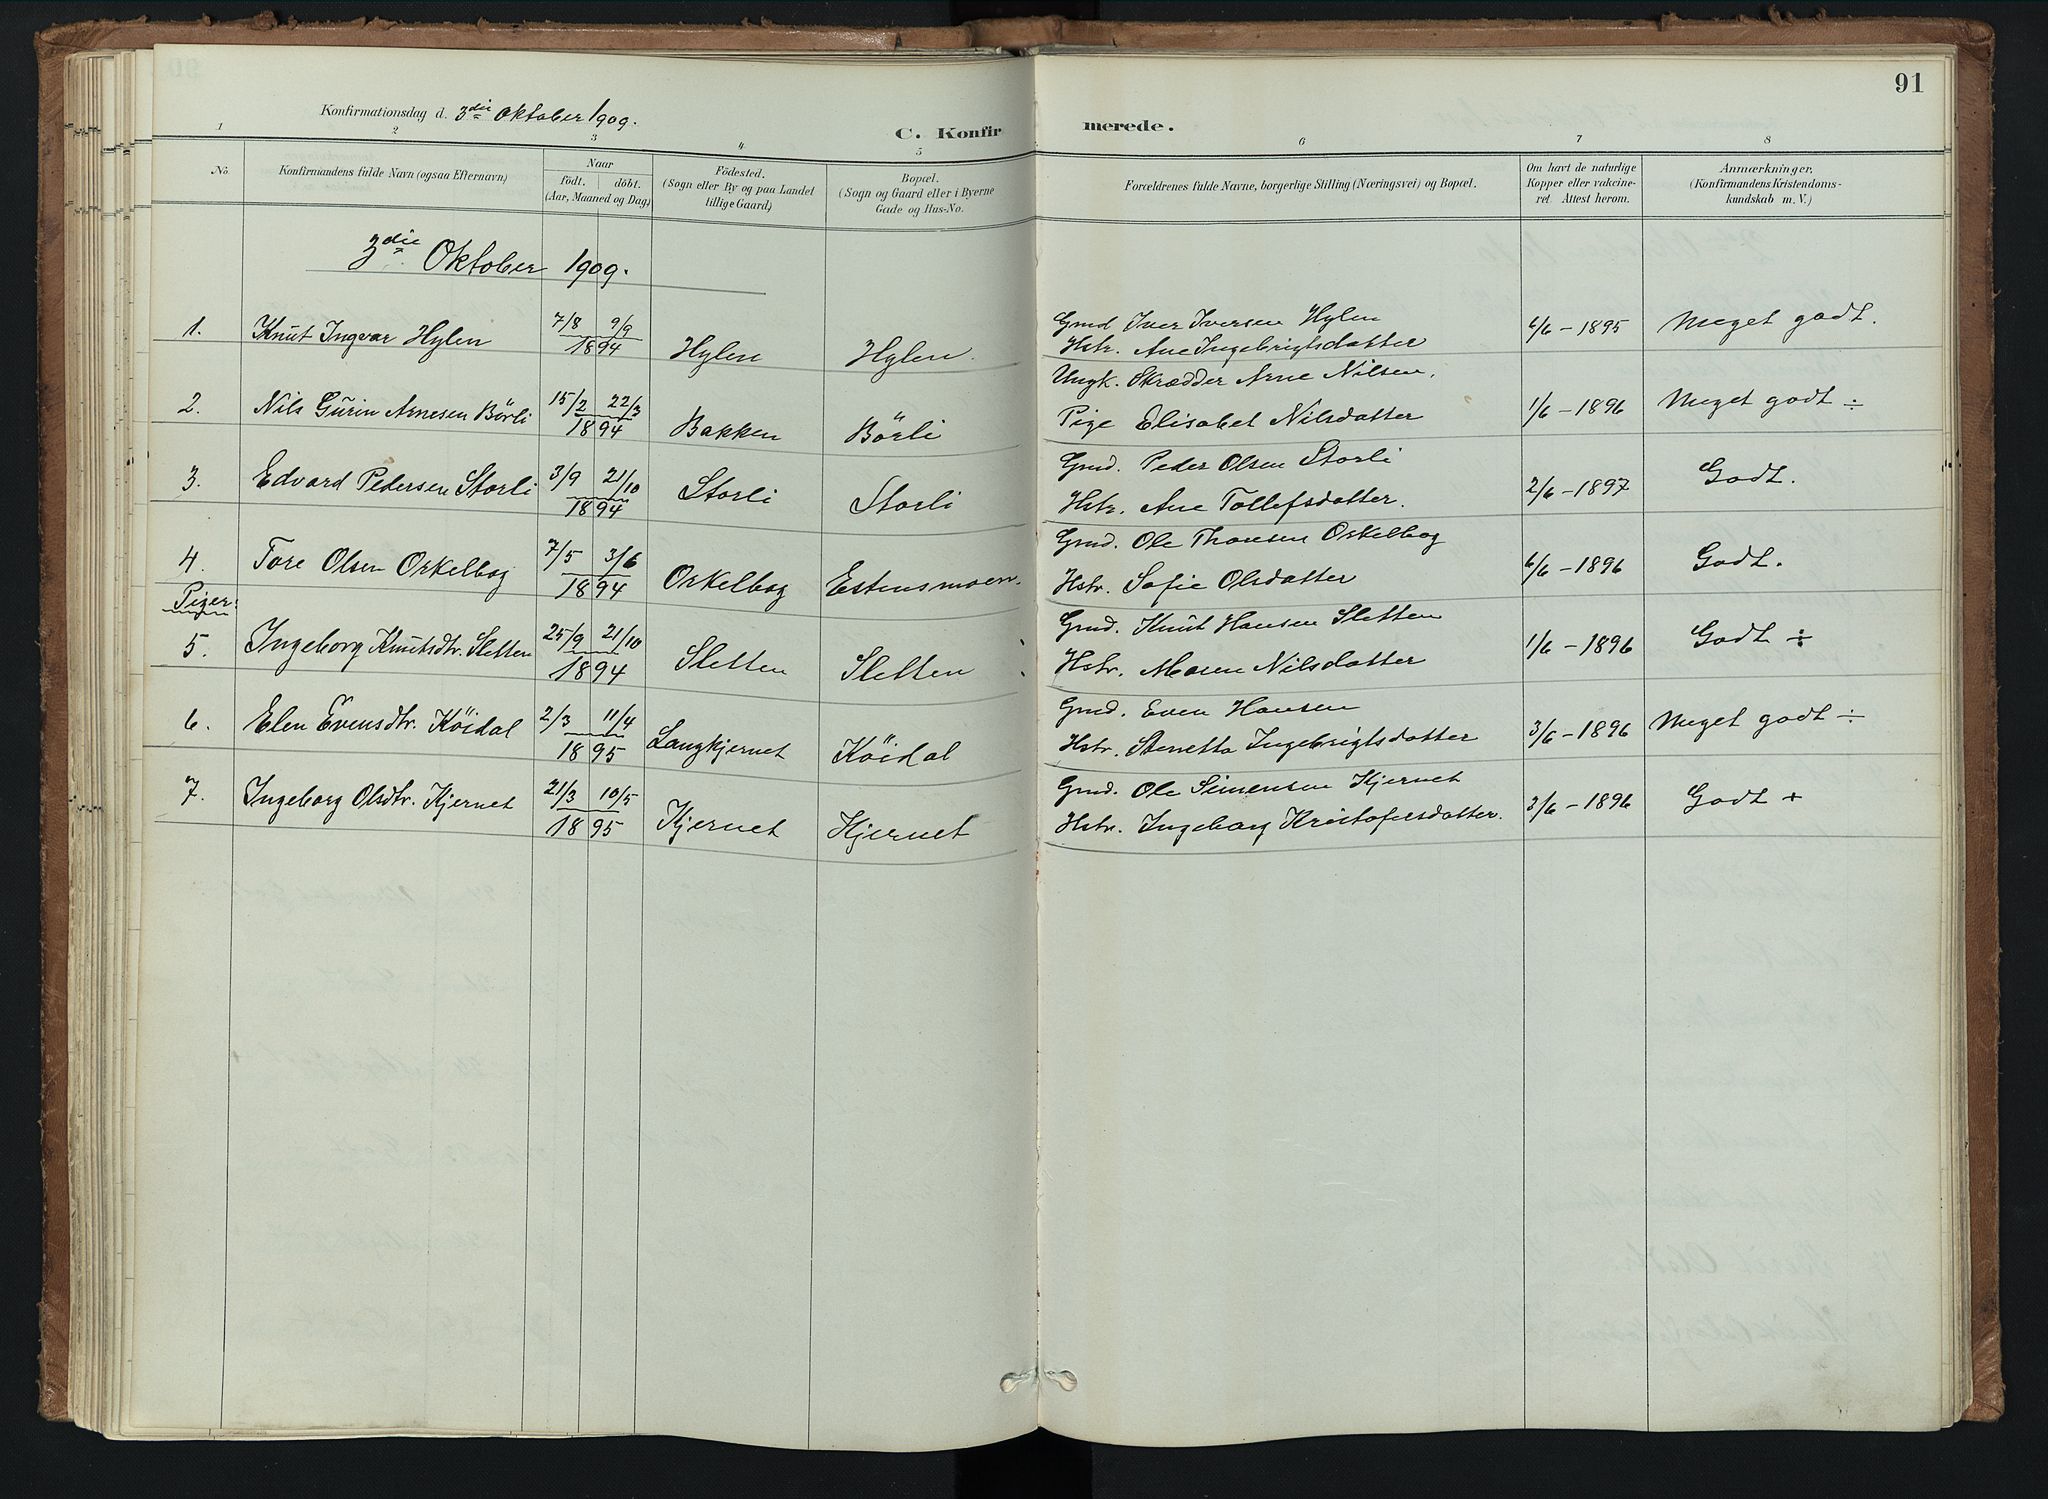 91
Konfirmationsdag d. 3die Oktober 1909.
C. Konfirmerede.
1 2 3 4 5 6 7 8
No. Konfirmandens fulde Navn (ogsaa Efternavn) Naar födt. döbt. (Aar, Maaned og Dag) Födested. (Sogn eller By og paa Landet tillige Gaard) Bopæl. (Sogn og Gaard eller i Byerne Gade og Hus-No. Forældrenes fulde Navne, borgerlige Stilling (Næringsvei) og Bopæl. Om havt de naturlige Kopper eller vakcineret. Attest herom. Anmærkninger. (Konfirmandens Kristendomskundskab m. V.)
3die Oktober 1909.
1. Knut Ingvar Hylen 7/8 9/9 1894 Hylen Hylen. Gmd Iver Iversen Hylen Hstr. Ane Ingebrigtsdatter 6/6 - 1895 Meget godt.
2. Nils Gurin Arnesen Börli 15/2 22/3 1894 Bakken Börli Ungk. Skrædder Arne Nilsen, Pige Elisabet Nilsdatter 1/6 - 1896 Meget godt ÷
3. Edvard Pedersen Storli 3/9 21/10 1894 Storli Storli Gmd. Peder Olsen Storli Hstr. Ane Tollefsdatter. 2/6 - 1897 Godt.
4. Tore Olsen Orkelbog 7/5 3/6 1894 Orkelbog Estensmoen. Gmd. Ole Thoresen Orkelbog Hstr. Sofie Olsdatter 6/6 - 1896 Godt.
Piger:
5. Ingeborg Knutsdtr. Sletten 25/9 21/10 1894 Sletten Sletten Gmd. Knut Hansen Sletten Hstr. Maren Nilsdatter 1/6 - 1896 Godt ÷
6. Elen Evensdtr. Köidal 2/3 11/4 1895 Langkjernet Köidal Gmd. Even Hansen Hstr. Stenetta Ingebrigtsdatter 3/6 - 1896 Meget godt ÷
7. Ingeborg Olsdtr. Kjernet 21/3 10/5 1895 Kjernet Kjernet Gmd. Ole Simensen Kjernet Hstr. Ingeborg Kristofersdatter. 3/6 - 1896 Godt +